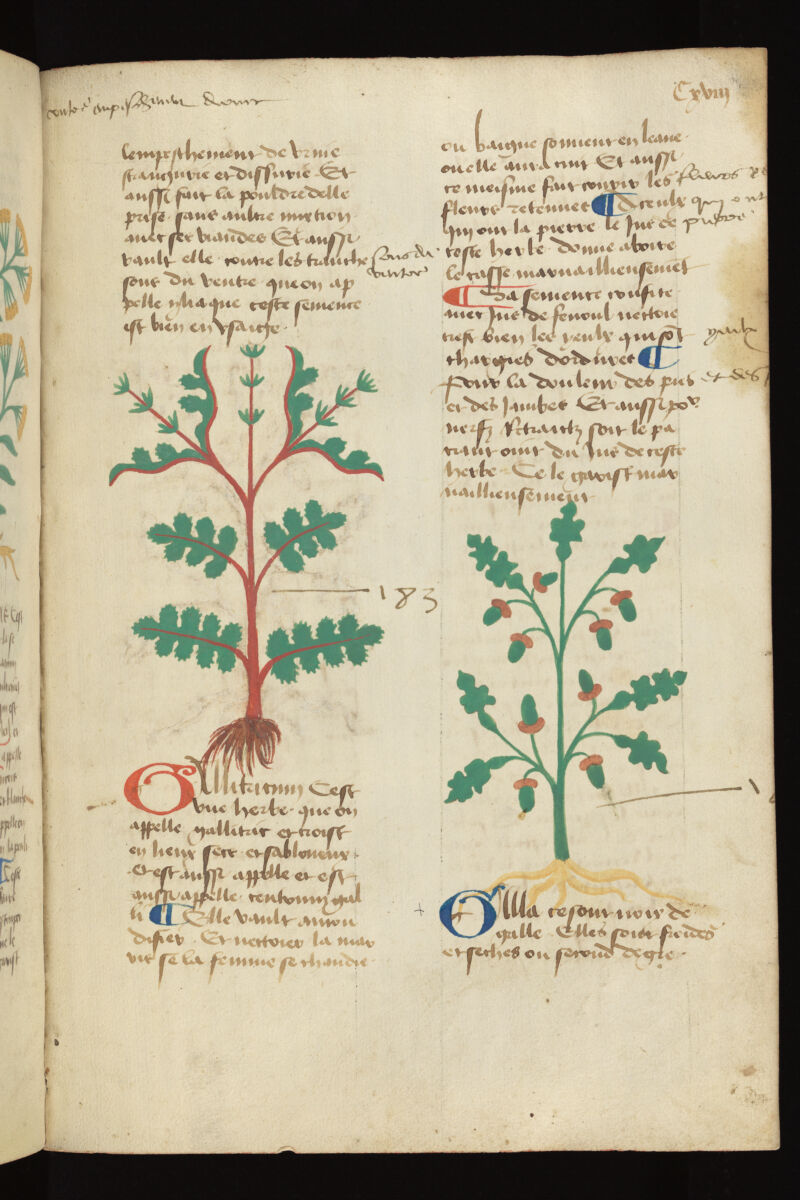 Cxviij
lempeschement de vrine
stangurie et dissurie Et
aussi fait la pouldre delle
prise sans aultre mixtion
auec ses viandes Et aussi
vault elle contre les tranche
sons du ventre que on ap
pelle yliaque ceste semence
est bien en vsaige
183
Gallitricum Cest
vne herbe que on
appelle gallitric et croist
en lieux secz et sabloneux
et est aussi appelle et est
aussi appelle centrum gal
li Elle vault a mon
difier Et nectoier la mar
ris se la femme se chaudie
ou baigne souuent en leaue
ou elle aura cuit Et aussi
ce meisme fait courir les fleurs
fleurs retenues A ceulx qui ont
qui ont la pierre le Jus de pierre
ceste herbe donne a boire
le casse maruailleusement
Sa semence confite
auec Jus de fenoul nectoie
tres bien les yeulx qui sont
chargies dordures
Pour la douleur des pies et des
et des Jambes Et aussi por
nerfz Retraictz soit le pa
cient oint du Jus de ceste
herbe Ce le garist mar
uailleusement
Galla ce sont noix de
galle Elles sont froides
et seches ou second degre